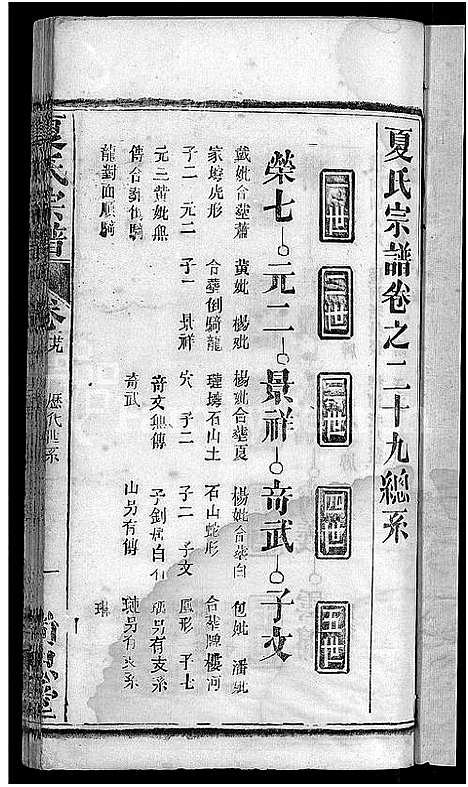 夏氏宗譜卷之二十九總系
一世 二世 三世 四世 五世
榮七 元二 景祥 奇武 子文
戴妣合塟蕭 黃妣 楊妣 楊妣合塟夏 楊妣合塟白 包妣 潘妣
家塝虎形 合塟倒騎龍 塝石山土 石山蛇形 合塟牌樓河
子二 元二 子一 景祥 穴 子二 子二 子文 鳳形 子七
元三黃妣無 奇文無傳 子釗居白石 另有支系
傳合塟倒騎 奇武 山另有傳 璉另有支系
龍對面順騎
夏氏宗譜 卷之 歷代世系 一